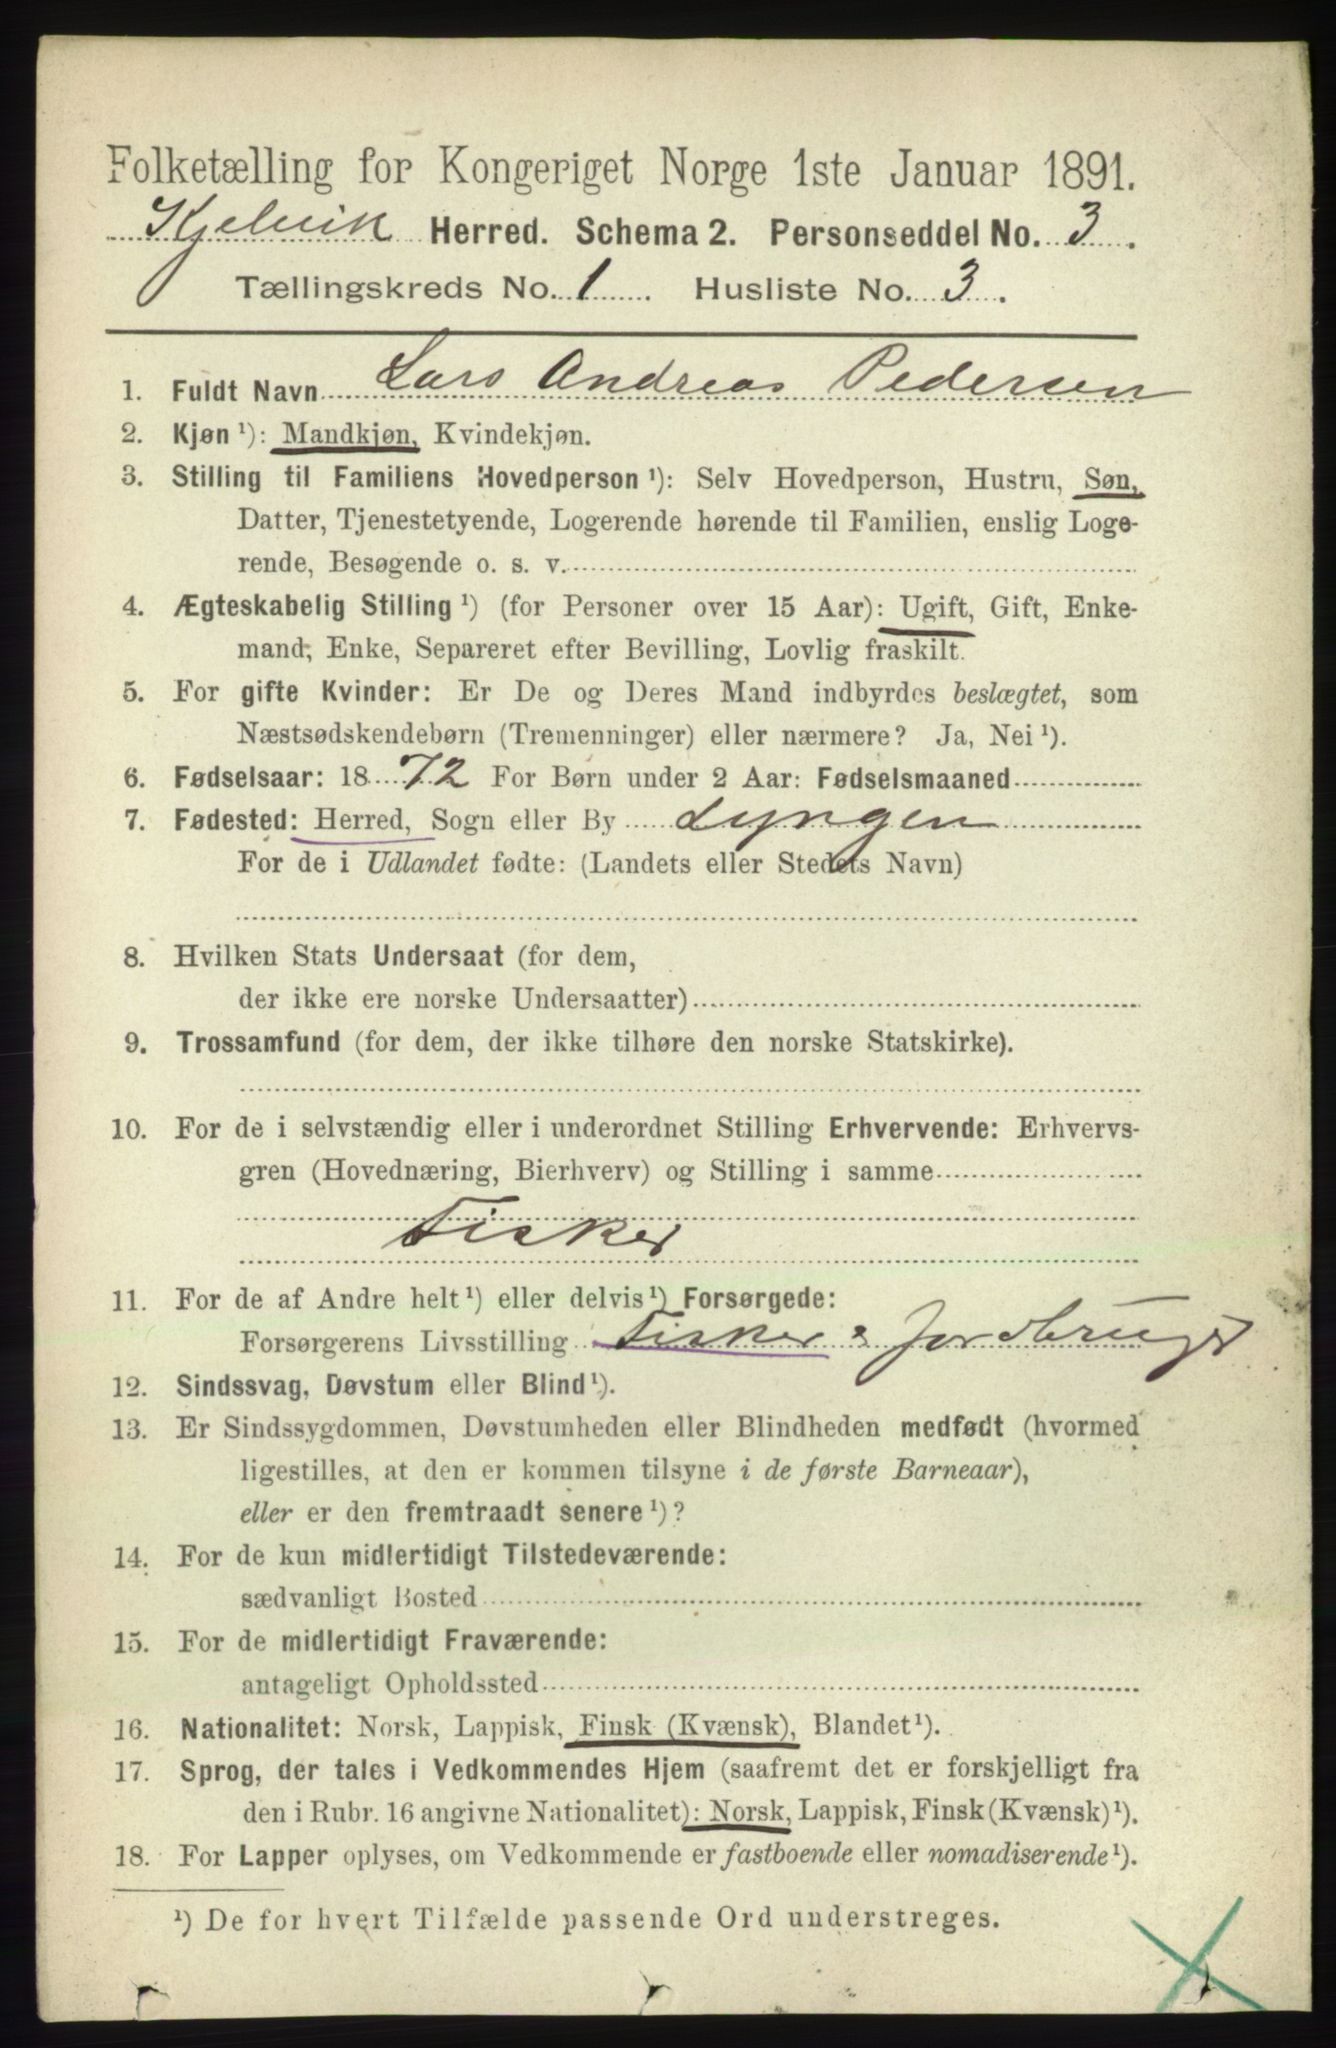 Folketælling for Kongeriget Norge 1ste Januar 1891.
Kjelvik Herred. Schema 2. Personseddel No. 3.
Tællingskreds No. 1 Husliste No. 3.
1. Fuldt Navn Lars Andreas Pedersen
2. Kjøn ¹): Mandkjøn, Kvindekjøn.
3. Stilling til Familiens Hovedperson ¹): Selv Hovedperson, Hustru, Søn,
Datter, Tjenestetyende, Logerende hørende til Familien, enslig Loge-
rende, Besøgende o. s. v.
4. Ægteskabelig Stilling ¹) (for Personer over 15 Aar): Ugift, Gift, Enke-
mand, Enke, Separeret efter Bevilling, Lovlig fraskilt.
5. For gifte Kvinder: Er De og Deres Mand indbyrdes beslægtet, som
Næstsødskendebørn (Tremenninger) eller nærmere? Ja, Nei ¹).
6. Fødselsaar: 1872 For Børn under 2 Aar: Fødselsmaaned
7. Fødested: Herred, Sogn eller By Lyngen
For de i Udlandet fødte: (Landets eller Stedets Navn)
8. Hvilken Stats Undersaat (for dem,
der ikke ere norske Undersaatter)
9. Trossamfund (for dem, der ikke tilhøre den norske Statskirke).
10. For de i selvstændig eller i underordnet Stilling Erhvervende: Erhvervs-
gren (Hovednæring, Bierhverv) og Stilling i samme
Fisker
11. For de af Andre helt ¹) eller delvis ¹) Forsørgede:
Forsørgerens Livsstilling Fisker & Jordbruger
12. Sindssvag, Døvstum eller Blind ¹).
13. Er Sindssygdommen, Døvstumheden eller Blindheden medfødt (hvormed
ligestilles, at den er kommen tilsyne i de første Barneaar),
eller er den fremtraadt senere ¹)?
14. For de kun midlertidigt Tilstedeværende:
sædvanligt Bosted
15. For de midlertidigt Fraværende:
antageligt Opholdssted
16. Nationalitet: Norsk, Lappisk, Finsk (Kvænsk), Blandet ¹).
17. Sprog, der tales i Vedkommendes Hjem (saafremt det er forskjelligt fra
den i Rubr. 16 angivne Nationalitet): Norsk, Lappisk, Finsk (Kvænsk) ¹).
18. For Lapper oplyses, om Vedkommende er fastboende eller nomadiserende ¹).
¹) De for hvert Tilfælde passende Ord understreges.